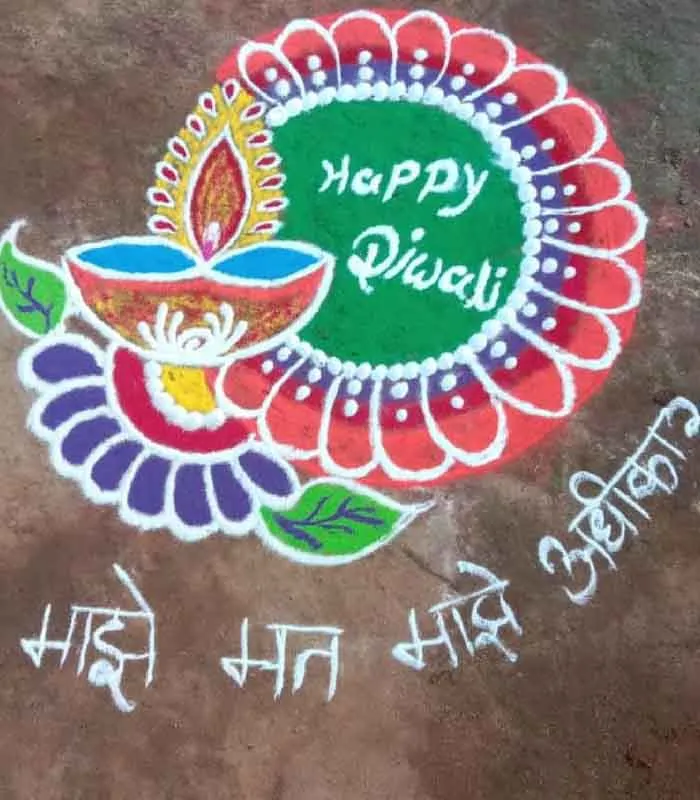 Happy
Diwali
माझे मत माझे अधीकार